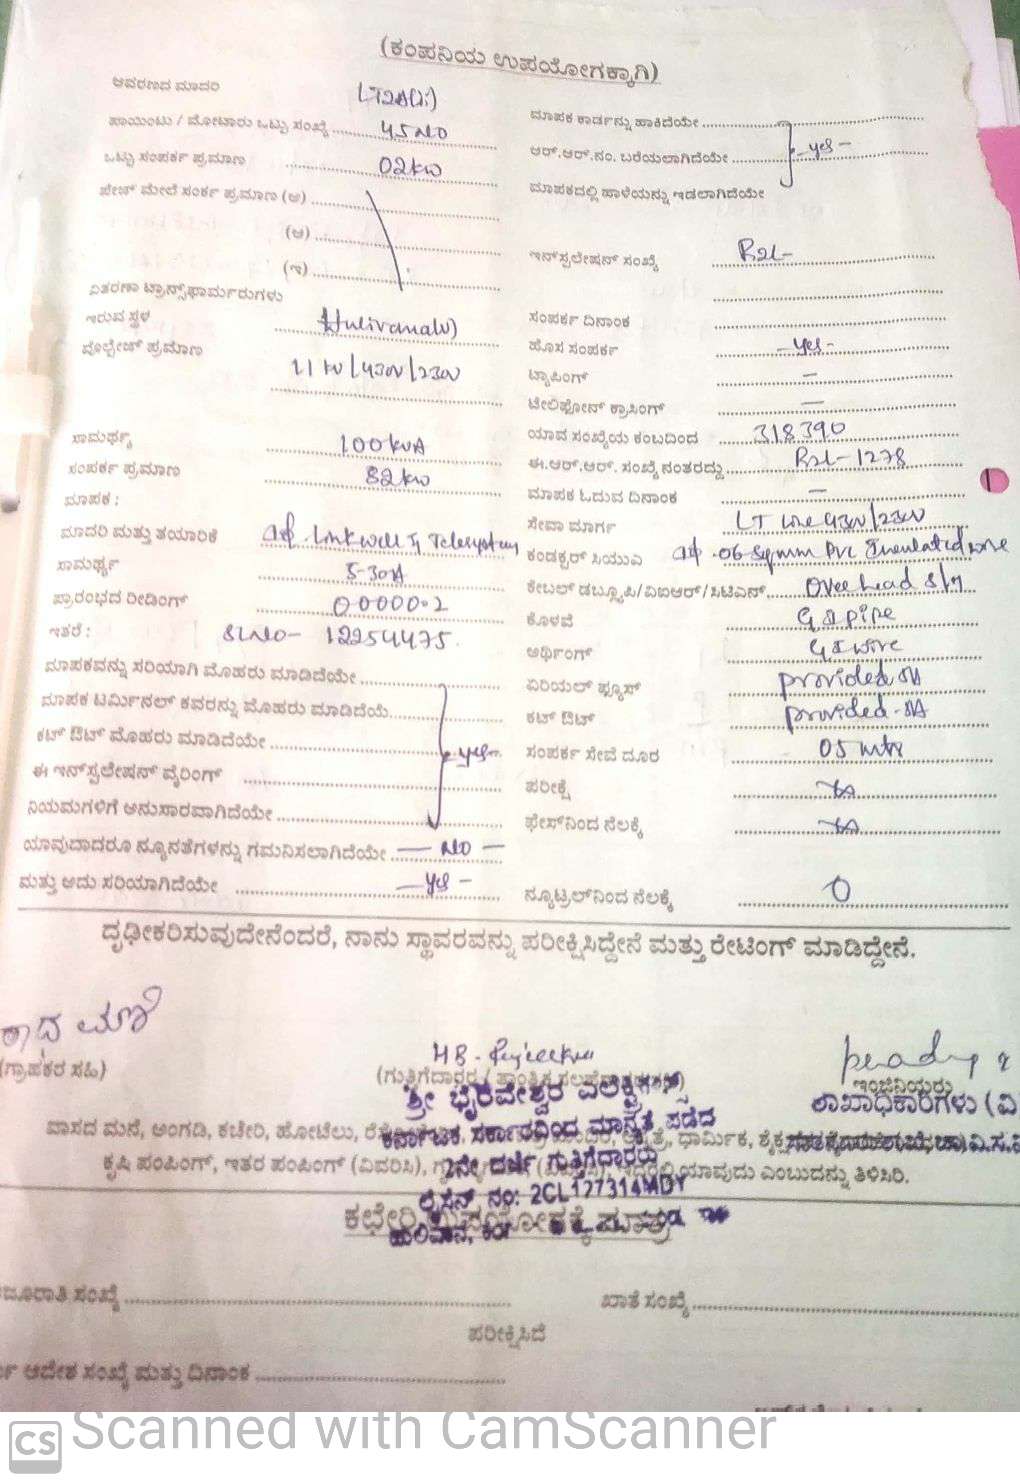 (ಕಂಪನಿಯ ಉಪಯೋಗಕ್ಕಾಗಿ)
ಆವರಣದ ಮಾದರಿ LT2A(ii)
ಪಾಯಿಂಟು / ಮೋಟಾರು ಒಟ್ಟು ಸಂಖ್ಯೆ 45 NO
ಒಟ್ಟು ಸಂಪರ್ಕ ಪ್ರಮಾಣ 02kw
ಪೇಜ್ ಮೇಲೆ ಸಂರ್ಕ ಪ್ರಮಾಣ (ಅ)
(ಆ)
(ಇ)
ವಿತರಣಾ ಟ್ರಾನ್ಸ್‌ಫಾರ್ಮರುಗಳು
ಇರುವ ಸ್ಥಳ Hulivana(v)
ವೊಲ್ಟೇಜ್ ಪ್ರಮಾಣ 11 kv/430v/230v
ಸಾಮರ್ಥ್ಯ 100kvA
ಸಂಪರ್ಕ ಪ್ರಮಾಣ 82kw
ಮಾಪಕ :
ಮಾದರಿ ಮತ್ತು ತಯಾರಿಕೆ Linkwell Telesystem
ಸಾಮರ್ಥ್ಯ 5-30A
ಪ್ರಾರಂಭದ ರೀಡಿಂಗ್ 00000.2
ಇತರೆ : SL NO- 12254475
ಮಾಪಕವನ್ನು ಸರಿಯಾಗಿ ಮೊಹರು ಮಾಡಿದೆಯೇ
ಮಾಪಕ ಟರ್ಮಿನಲ್ ಕವರನ್ನು ಮೊಹರು ಮಾಡಿದೆಯೆ
ಕಟ್ ಔಟ್ ಮೊಹರು ಮಾಡಿದೆಯೇ yes-
ಈ ಇನ್‌ಸ್ಪಲೇಷನ್ ವೈರಿಂಗ್
ನಿಯಮಗಳಿಗೆ ಅನುಸಾರವಾಗಿದೆಯೇ
ಯಾವುದಾದರೂ ನ್ಯೂನತೆಗಳನ್ನು ಗಮನಿಸಲಾಗಿದೆಯೇ — NO —
ಮತ್ತು ಅದು ಸರಿಯಾಗಿದೆಯೇ — yes —
ಮಾಪಕ ಕಾರ್ಡನ್ನು ಹಾಕಿದೆಯೇ
ಆರ್.ಆರ್.ನಂ. ಬರೆಯಲಾಗಿದೆಯೇ - yes -
ಮಾಪಕದಲ್ಲಿ ಹಾಳೆಯನ್ನು ಇಡಲಾಗಿದೆಯೇ
ಇನ್‌ಸ್ಪಲೇಷನ್ ಸಂಖ್ಯೆ R2L-
ಸಂಪರ್ಕ ದಿನಾಂಕ
ಹೊಸ ಸಂಪರ್ಕ - yes -
ಟ್ಯಾಪಿಂಗ್ —
ಟೇಲಿಫೋನ್ ಕ್ರಾಸಿಂಗ್ —
ಯಾವ ಸಂಖ್ಯೆಯ ಕಂಬದಿಂದ 318390
ಈ.ಆರ್.ಆರ್. ಸಂಖ್ಯೆ ನಂತರದ್ದು R2L-1278
ಮಾಪಕ ಓದುವ ದಿನಾಂಕ —
ಸೇವಾ ಮಾರ್ಗ LT Line 430v/230v
ಕಂಡಕ್ಟರ್ ಸಿಯುವಿ 06 Sqmm PVC Insulated wire
ಕೇಬಲ್ ಡಬ್ಲ್ಯೂಪಿ/ವಿಐಆರ್/ಸಿಟಿಎಸ್ Over head
ಕೊಳವೆ G I pipe
ಆರ್ಥಿಂಗ್ G I wire
ಏರಿಯಲ್ ಫ್ಯೂಸ್ provided
ಕಟ್ ಔಟ್ provided
ಸಂಪರ್ಕ ಸೇವೆ ದೂರ 05 mtr
ಪರೀಕ್ಷೆ
ಫೇಸ್‌ನಿಂದ ನೆಲಕ್ಕೆ
ನ್ಯೂಟ್ರಲ್‌ನಿಂದ ನೆಲಕ್ಕೆ 0
ದೃಢೀಕರಿಸುವುದೇನೆಂದರೆ, ನಾನು ಸ್ಥಾವರವನ್ನು ಪರೀಕ್ಷಿಸಿದ್ದೇನೆ ಮತ್ತು ರೇಟಿಂಗ್ ಮಾಡಿದ್ದೇನೆ.
(ಗ್ರಾಹಕರ ಸಹಿ)
ಇಂಜಿನಿಯರು
ಶ್ರೀ ಭೈರವೇಶ್ವರ ಎಲೆಕ್ಟ್ರಿಕಲ್ಸ್
ಶಾಖಾಧಿಕಾರಿಗಳು (ವಿ
ವಾಸದ ಮನೆ, ಅಂಗಡಿ, ಕಚೇರಿ, ಹೋಟೆಲು, ಧಾರ್ಮಿಕ,
ಕರ್ನಾಟಕ ಸರ್ಕಾರದಿಂದ ಮಾನ್ಯತೆ ಪಡೆದ
ಕೃಷಿ ಪಂಪಿಂಗ್, ಇತರ ಪಂಪಿಂಗ್ (ವಿವರಿಸಿ), ಯಾವುದು ಎಂಬುದನ್ನು ತಿಳಿಸಿರಿ.
2ನೇ ದರ್ಜೆ ಗುತ್ತಿಗೆದಾರರು
ಲೈಸೆನ್ಸ್ ನಂ: 2CL127314MDY
ಕಛೇರಿ ಉಪಯೋಗಕ್ಕೆ ಮಾತ್ರ
ಸಂಖ್ಯೆ
ಖಾತೆ ಸಂಖ್ಯೆ
ಪರೀಕ್ಷಿಸಿದೆ
ಆದೇಶ ಸಂಖ್ಯೆ ಮತ್ತು ದಿನಾಂಕ
CS Scanned with CamScanner